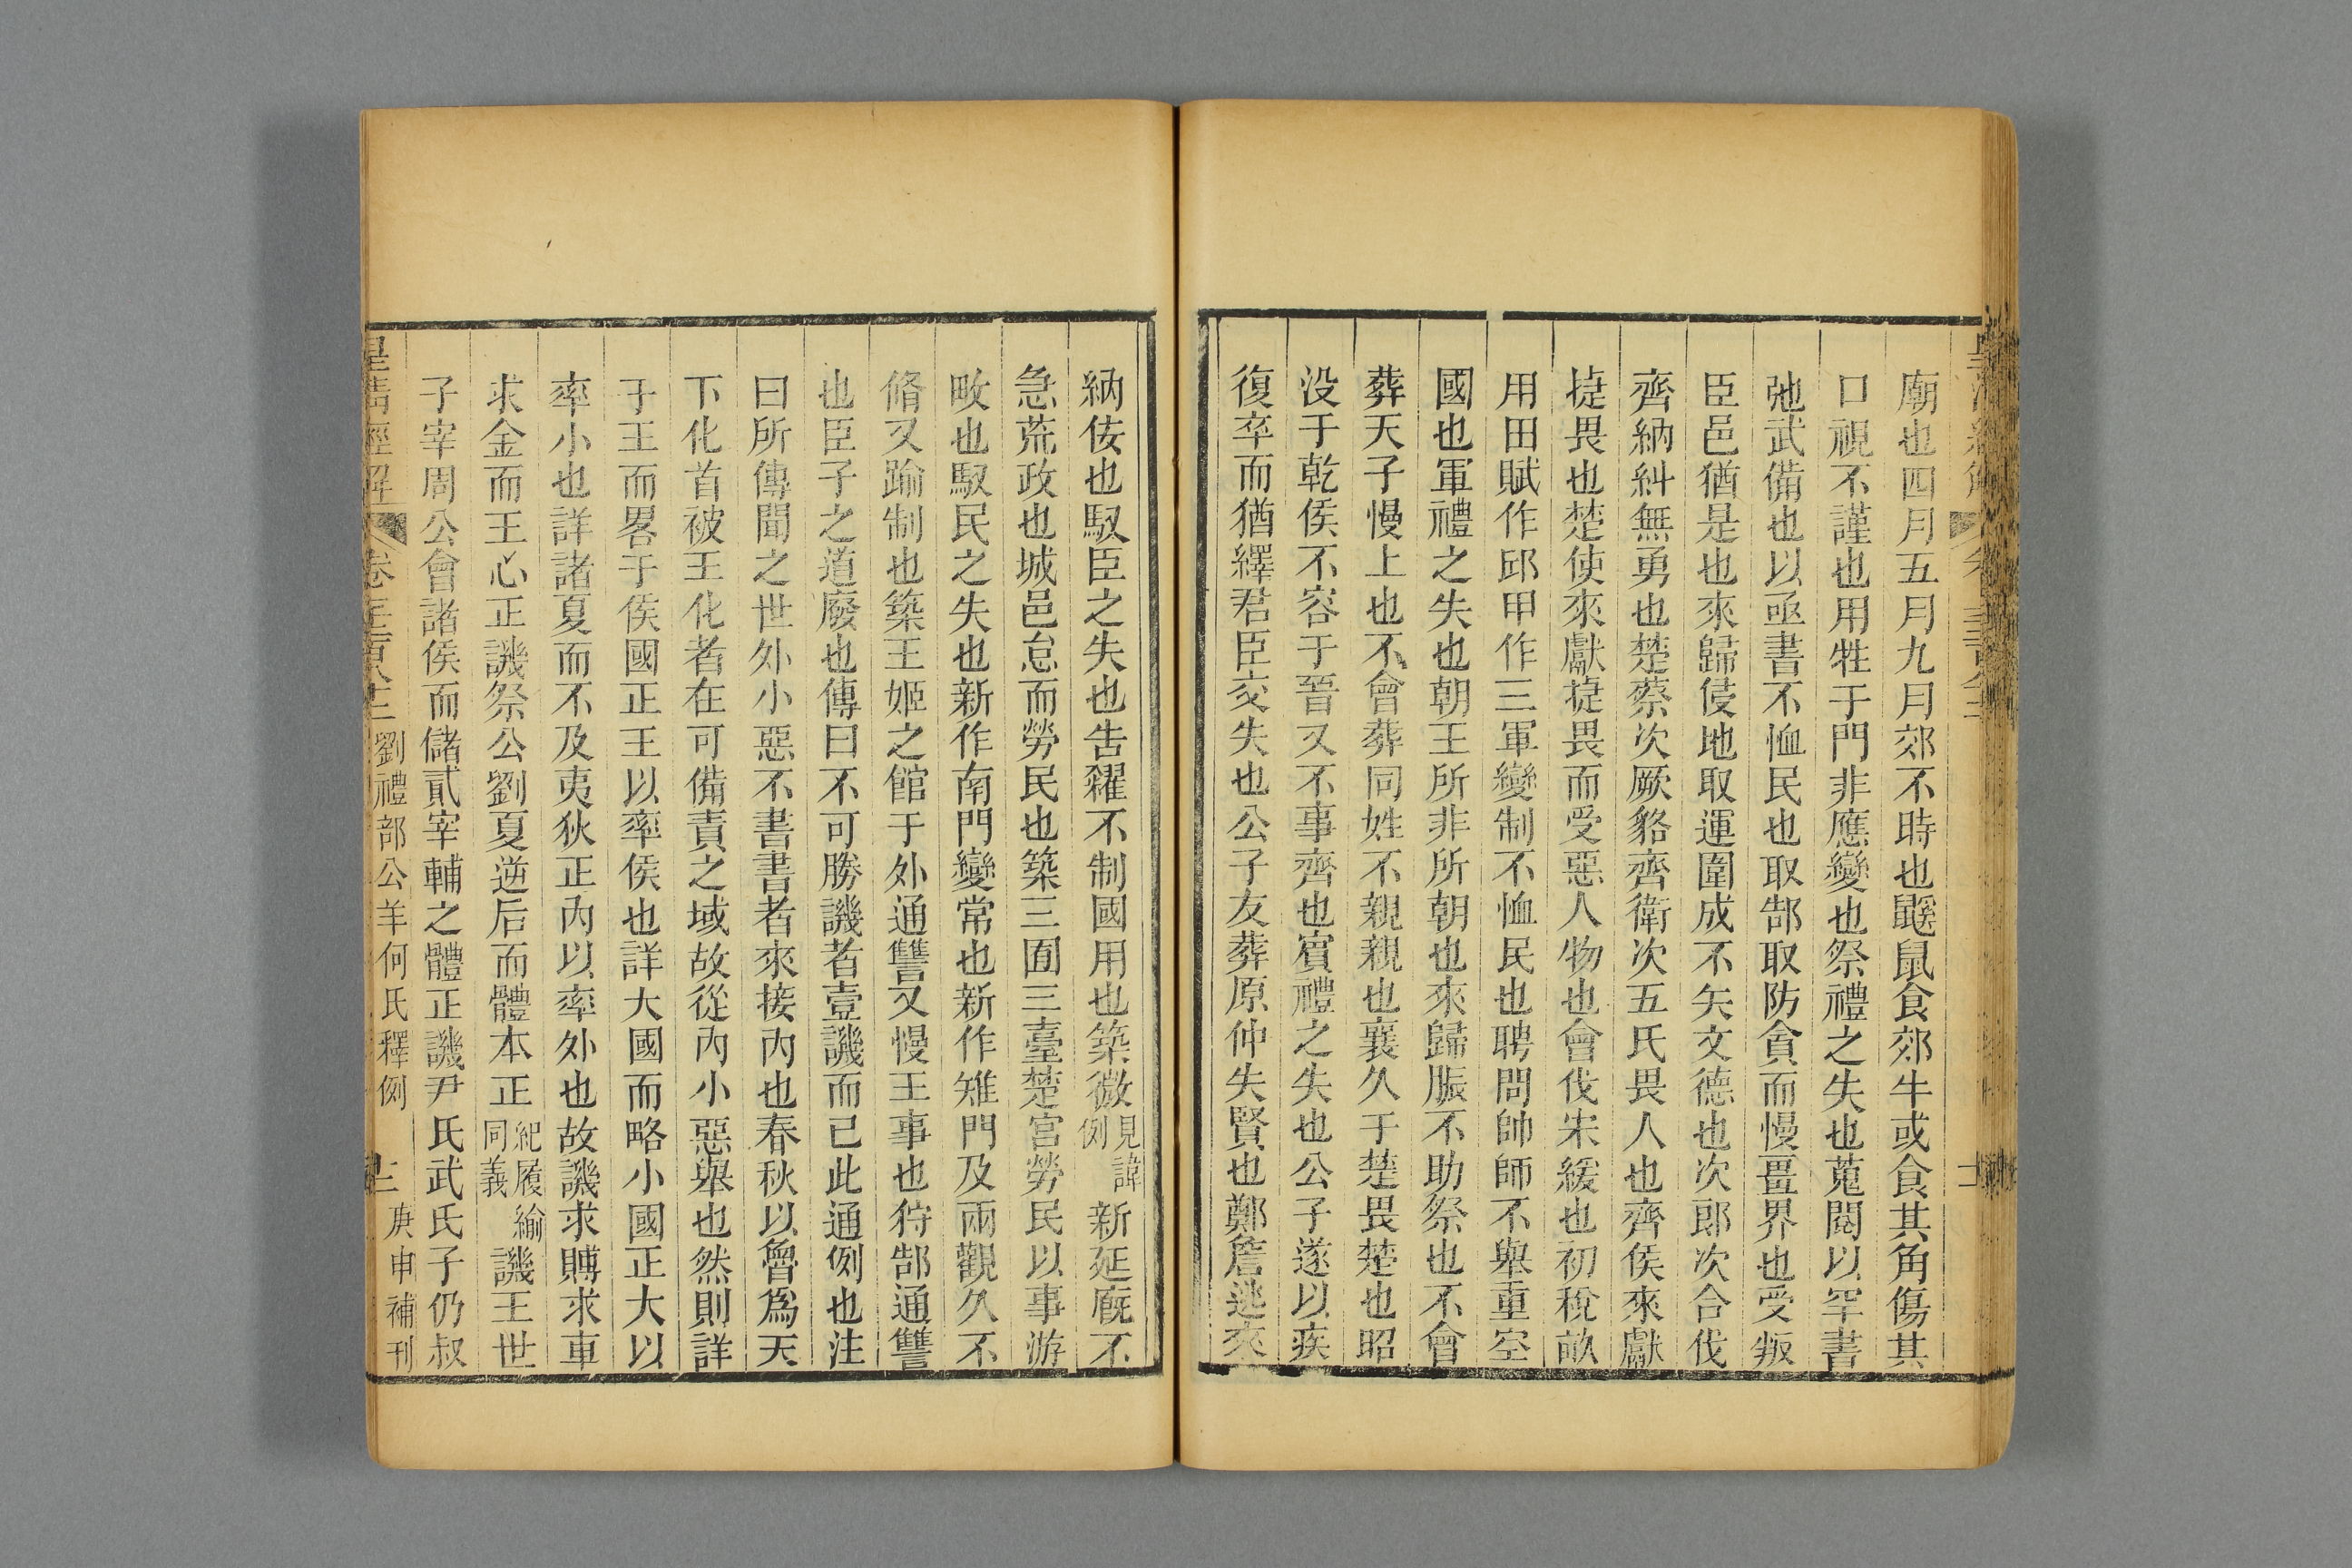 廟也四月五月九月郊不時也鼷鼠食郊牛或食其角傷其
口視不謹也用牲于門非應變也祭禮之失也蒐閱以罕書
弛武備也以亟書不恤民也取郜取防貪而慢畺界也受叛
臣邑猶是也來歸侵地取運圍成不矢文德也次郎次合伐
齊納糾無勇也楚蔡次厥貉齊衛次五氏畏人也齊侯來獻
捷畏也楚使來獻捷畏而受惡人物也會伐宋緩也初稅畝
用田賦作邱甲作三軍變制不恤民也聘問帥師不舉重空
國也軍禮之失也朝王所非所朝也來歸脤不助祭也不會
葬天子慢上也不會葬同姓不親親也襄久于楚畏楚也昭
没于乾侯不容于晉又不事齊也賓禮之失也公子遂以疾
復卒而猶繹君臣交失也公子友葬原仲失賢也鄭詹逃來
納佞也馭臣之失也告糴不制國用也築微見諱例新延廐不
急荒政也城邑怠而勞民也築三囿三臺楚宮勞民以事游
畋也馭民之失也新作南門變常也新作雉門及兩觀久不
脩又踰制也築王姬之館于外通讐又慢王事也狩郜通讐
也臣子之道廢也傳曰不可勝譏者壹譏而已此通例也注
曰所傳聞之世外小惡不書書者來接內也春秋以魯爲天
下化首被王化者在可備責之域故從內小惡舉也然則詳
于王而畧于侯國正王以率侯也詳大國而略小國正大以
率小也詳諸夏而不及夷狄正內以率外也故譏求賻求車
求金而王心正譏祭公劉夏逆后而體本正紀履緰同義譏王世
子宰周公會諸侯而儲貳宰輔之體正譏尹氏武氏子仍叔
皇清經解 卷 劉禮部公羊何氏釋例 庚申補刊